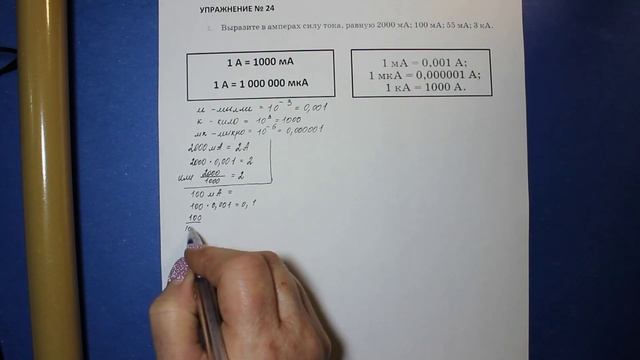 УПРАЖНЕНИЕ № 24
Выразите в амперах силу тока, равную 2000 мА; 100 мА; 55 мА; 3 кА.
1 А = 1000 мА
1 А = 1 000 000 мкА
1 мА = 0,001 А;
1 мкА = 0,000001 А;
1 кА = 1000 А.
м - милли = 10⁻³ = 0,001
к - кило = 10³ = 1000
мк - микро = 10⁻⁶ = 0,000001
2000 мА = 2 А
2000 · 0,001 = 2
или 2000/1000 = 2
100 мА =
100 · 0,001 = 0,1
100
10